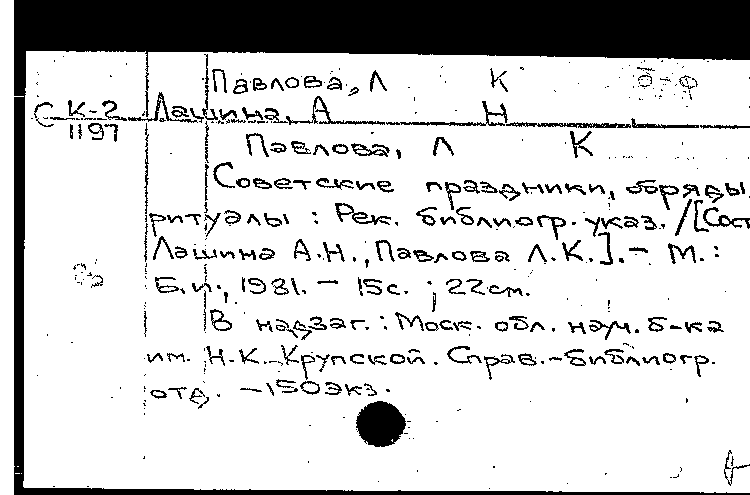 Павлова, Л К б-ф
С К-2 Лашина, А Н
1197
Павлова, Л К
Советские праздники, обряды,
ритуалы : Рек. библиогр. указ. /[Сост.
Лашина А.Н., Павлова Л.К.].- М.:
Б.и., 1981. - 15с. ; 22см.
В надзаг.: Моск. обл. науч. б-ка
им. Н.К. Крупской. Справ.-библиогр.
отд. -150экз.